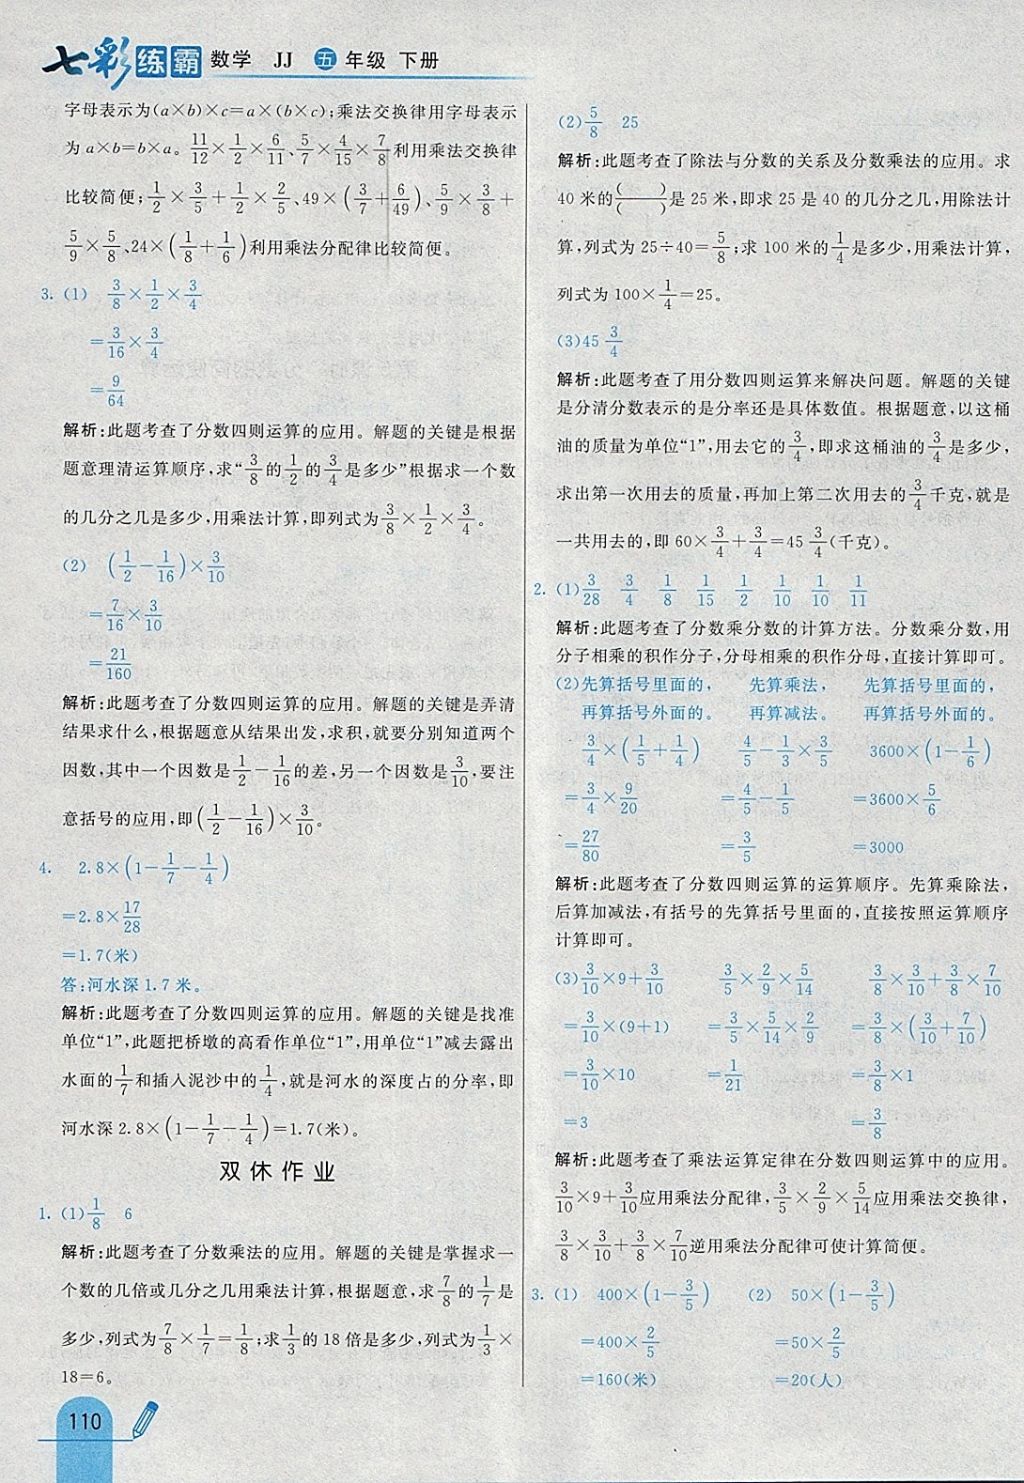 七彩练霸 数学 JJ 五年级 下册
字母表示为(a×b)×c=a×(b×c);乘法交换律用字母表示
为a×b=b×a。11/12×1/2×6/11、5/7×4/15×7/8利用乘法交换律
比较简便;1/2×3/5+1/2×2/5、49×(3/7+6/49)、5/9×3/8+
5/9×5/8、24×(1/8+1/6)利用乘法分配律比较简便。
3. (1) 3/8×1/2×3/4
=3/16×3/4
=9/64
解析:此题考查了分数四则运算的应用。解题的关键是根据
题意理清运算顺序,求“3/8的1/2的3/4是多少”根据求一个数
的几分之几是多少,用乘法计算,即列式为3/8×1/2×3/4。
(2) (1/2-1/16)×3/10
=7/16×3/10
=21/160
解析:此题考查了分数四则运算的应用。解题的关键是弄清
结果求什么,根据题意从结果出发,求积,就要分别知道两个
因数,其中一个因数是1/2-1/16的差,另一个因数是3/10,要注
意括号的应用,即(1/2-1/16)×3/10。
4. 2.8×(1-1/7-1/4)
=2.8×17/28
=1.7(米)
答:河水深1.7米。
解析:此题考查了分数四则运算的应用。解题的关键是找准
单位“1”,此题把桥墩的高看作单位“1”,用单位“1”减去露出
水面的1/7和插入泥沙中的1/4,就是河水的深度占的分率,即
河水深2.8×(1-1/7-1/4)=1.7(米)。
双休作业
1. (1)1/8 6
解析:此题考查了分数乘法的应用。解题的关键是掌握求一
个数的几倍或几分之几用乘法计算,根据题意,求7/8的1/7是
多少,列式为7/8×1/7=1/8;求1/3的18倍是多少,列式为1/3×
18=6。
110
(2)5/8 25
解析:此题考查了除法与分数的关系及分数乘法的应用。求
40米的( )/( )是25米,即求25是40的几分之几,用除法计
算,列式为25÷40=5/8;求100米的1/4是多少,用乘法计算,
列式为100×1/4=25。
(3)45 3/4
解析:此题考查了用分数四则运算来解决问题。解题的关键
是分清分数表示的是分率还是具体数值。根据题意,以这桶
油的质量为单位“1”,用去它的3/4,即求这桶油的3/4是多少,
求出第一次用去的质量,再加上第二次用去的3/4千克,就是
一共用去的,即60×3/4+3/4=45 3/4(千克)。
2. (1)3/28 3/4 1/8 1/15 1/2 1/10 1/10 1/11
解析:此题考查了分数乘分数的计算方法。分数乘分数,用
分子相乘的积作分子,分母相乘的积作分母,直接计算即可。
(2)先算括号里面的, 先算乘法, 先算括号里面的,
再算括号外面的。 再算减法。 再算括号外面的。
3/4×(1/5+1/4) 4/5-1/3×3/5 3600×(1-1/6)
=3/4×9/20 =4/5-1/5 =3600×5/6
=27/80 =3/5 =3000
解析:此题考查了分数四则运算的运算顺序。先算乘除法,
后算加减法,有括号的先算括号里面的,直接按照运算顺序
计算即可。
(3)3/10×9+3/10 3/5×2/9×5/14 3/8×3/10+3/8×7/10
=3/10×(9+1) =3/5×5/14×2/9 =3/8×(3/10+7/10)
=3/10×10 =1/21 =3/8×1
=3 =3/8
解析:此题考查了乘法运算定律在分数四则运算中的应用。
3/10×9+3/10应用乘法分配律,3/5×2/9×5/14应用乘法交换律,
3/8×3/10+3/8×7/10逆用乘法分配律可使计算简便。
3. (1) 400×(1-3/5) (2) 50×(1-3/5)
=400×2/5 =50×2/5
=160(米) =20(人)